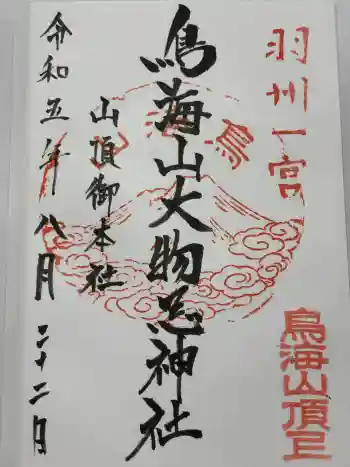 羽州一宮
鳥海山頂上
鳥海山大物忌神社
山頂御本社
令和五年八月二十二日